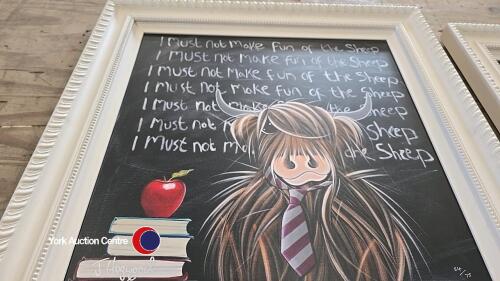 I Must not make fun of the Sheep
I Must not make fun of the Sheep
I Must not Make fun of the Sheep
I Must not make fun of the Sheep
I Must not make the Sheep
I Must not m Sheep
I Must not ma the Sheep
York Auction Centre
J Hogwood
/75